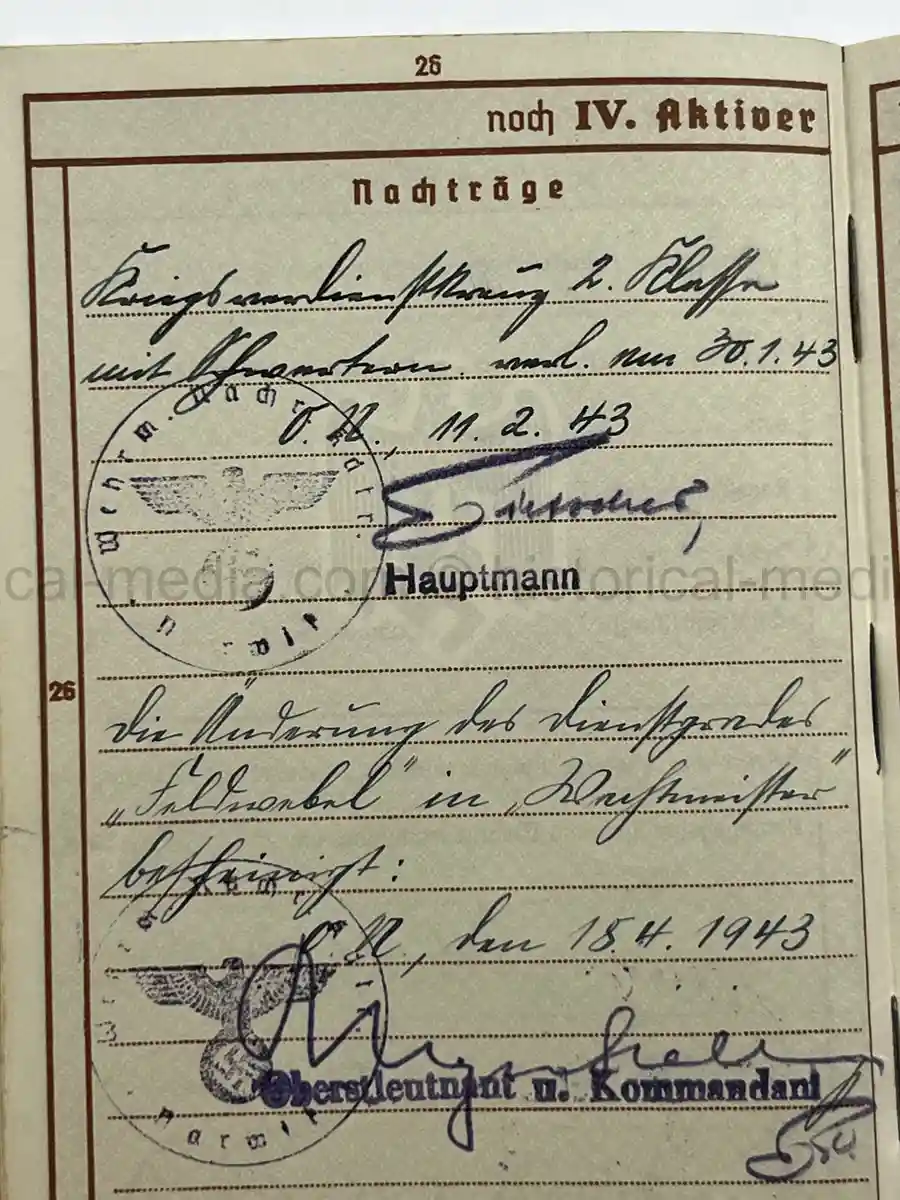 26
noch IV. Aktiver
Nachträge
Kriegsverdienstkreuz 2. Klasse
mit Schwertern verl. am 30.1.43
O. U., 11. 2. 43
Wehrm. Nachr.
Hauptmann
cal-media.com © historical-medi
26
Die Änderung des Dienstgrades
„Feldwebel" in „Wachtmeister"
bescheinigt:
O. U., den 18.4.1943
Oberstleutnant u. Kommandant